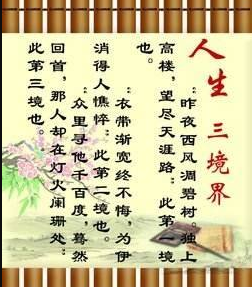 人生三境界
“昨夜西风凋碧树。独上
高楼，望尽天涯路”此第一境
也。
“衣带渐宽终不悔，为伊
消得人憔悴”此第二境也。
“众里寻他千百度，蓦然
回首，那人却在灯火阑珊处”
此第三境也。